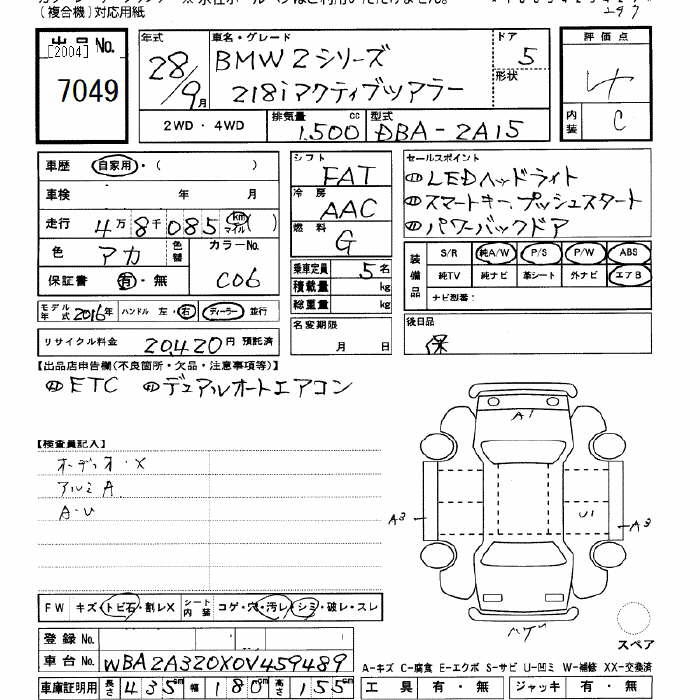 (複合機)対応用紙
297
出品No. 年式 車名・グレード ドア 評価点
[2004] 28/9月 BMW 2シリーズ 5 4
7049 218iアクティブツアラー 形状
2WD・4WD 排気量 1.500 cc 型式 DBA-2A15 内装 C
車歴 自家用・( )
車検 年 月
走行 4万8千085 km マイル ( )
色 アカ 色替 カラーNo.
保証書 有・無 C06
モデル年式 2016年 ハンドル 左・右 ディーラー・並行
リサイクル料金 20,420円 預託済
シフト FAT
冷房 AAC
燃料 G
乗車定員 5名
積載量 kg
総重量 kg
名変期限
月 日
セールスポイント
LEDヘッドライト
スマートキー、プッシュスタート
パワーバックドア
装備品 S/R 純A/W P/S P/W ABS
純TV 純ナビ 革シート 外ナビ エアB
ナビ型番:
後日品
保
【出品店申告欄(不良箇所・欠品・注意事項等)】
ETC デュアルオートエアコン
【検査員記入】
オーディオ・X
アルミ A
A・U
A1
A2 U1 A3
FW キズ・トビ石・割レX シート内装 コゲ・穴・汚レ・シミ・破レ・スレ
スペア
登録No.
車台No. WBA2A320X0V459489
A-キズ C-腐食 E-エクボ S-サビ U-凹ミ W-補修 XX-交換済
車庫証明用 長さ 435cm 幅 180cm 高さ 155cm 工具 有・無 ジャッキ 有・無